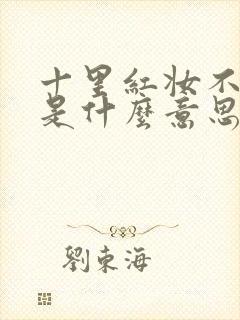 十里紅妝不
是什麼意思
劉東海